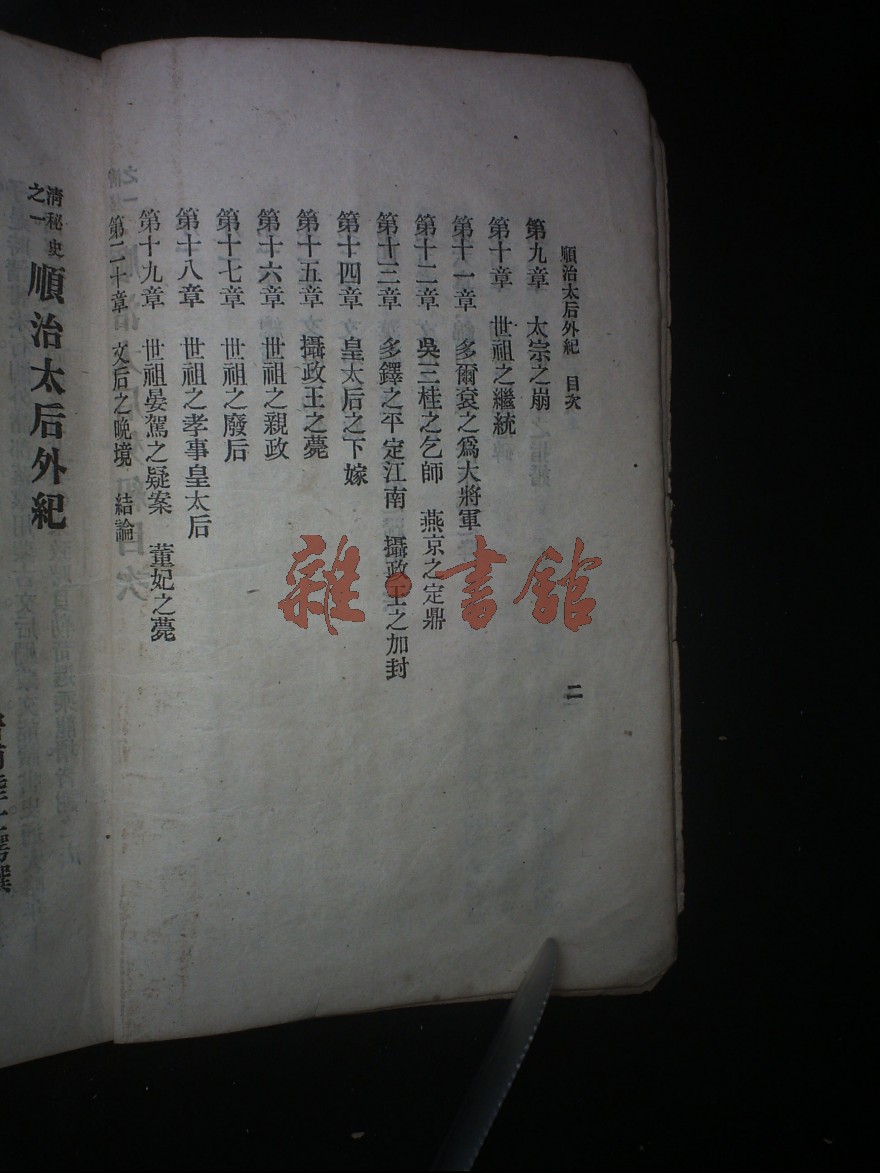 順治太后外紀 目次
二
第九章 太宗之崩
第十章 世祖之繼統
第十一章 多爾袞之爲大將軍
第十二章 吳三桂之乞師 燕京之定鼎
第十三章 多鐸之平定江南 攝政王之加封
第十四章 皇太后之下嫁
第十五章 攝政王之薨
第十六章 世祖之親政
第十七章 世祖之廢后
第十八章 世祖之孝事皇太后
第十九章 世祖晏駕之疑案 董妃之薨
第二十章 文后之晚境 結論
清秘史之一 順治太后外紀
雜·書館